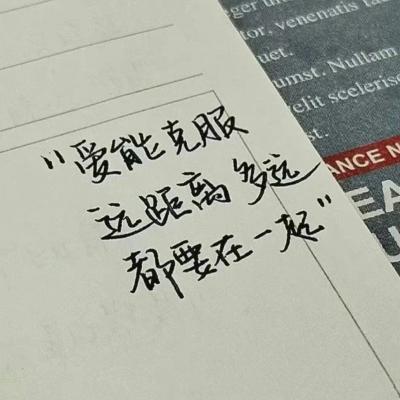 "爱能克服
远距离多远
都要在一起"
tor, venenatis
uet.
umst. Nullam
velit scelerisq
st.
ANCE N
EA